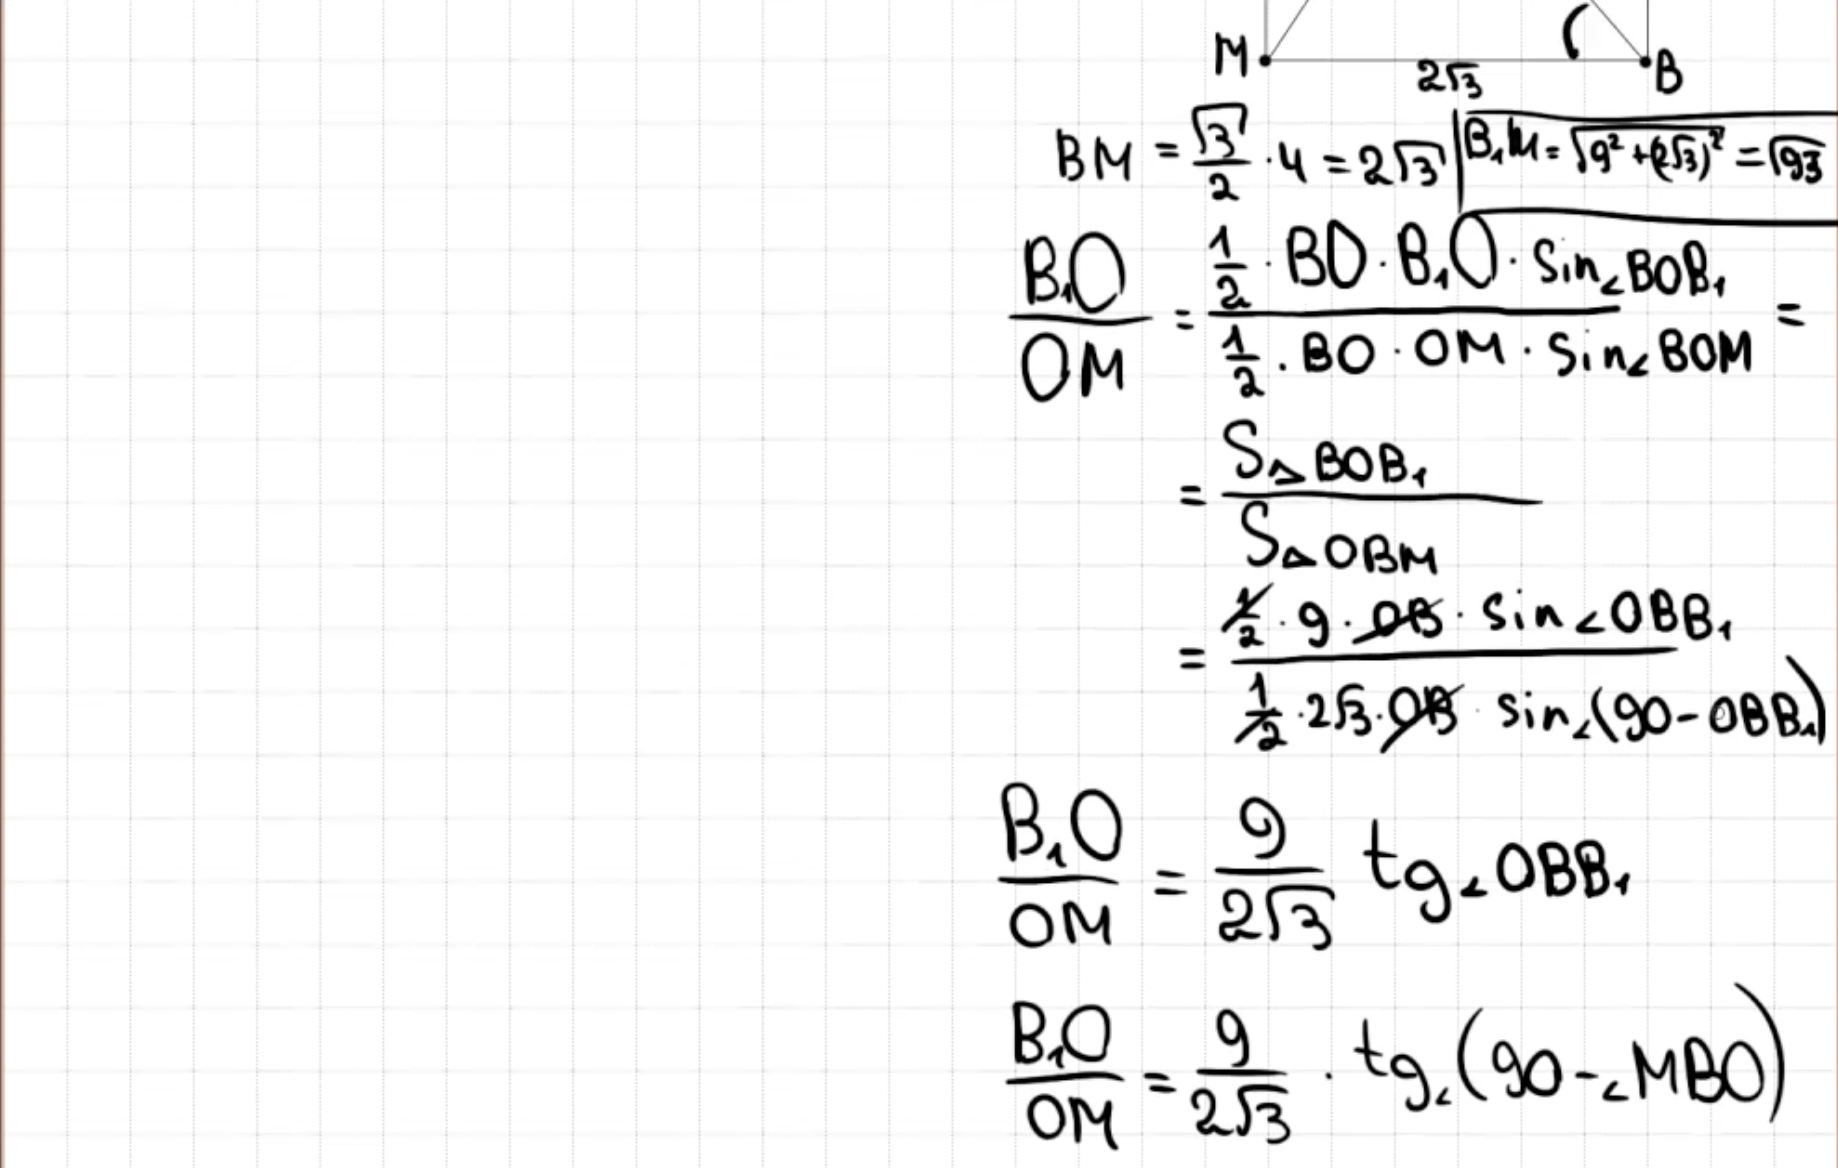 M B
2√3
BM = √3/2 · 4 = 2√3 | B₁M = √(9² + (2√3)²) = √93
B₁O/OM = (1/2 · BO · B₁O · sin∠BOB₁)/(1/2 · BO · OM · sin∠BOM) =
= S△BOB₁/S△OBM
= (1/2 · 9 · OB · sin∠OBB₁)/(1/2 · 2√3 · OB · sin∠(90-OBB₁))
B₁O/OM = 9/(2√3) tg∠OBB₁
B₁O/OM = 9/(2√3) · tg∠(90-∠MBO)